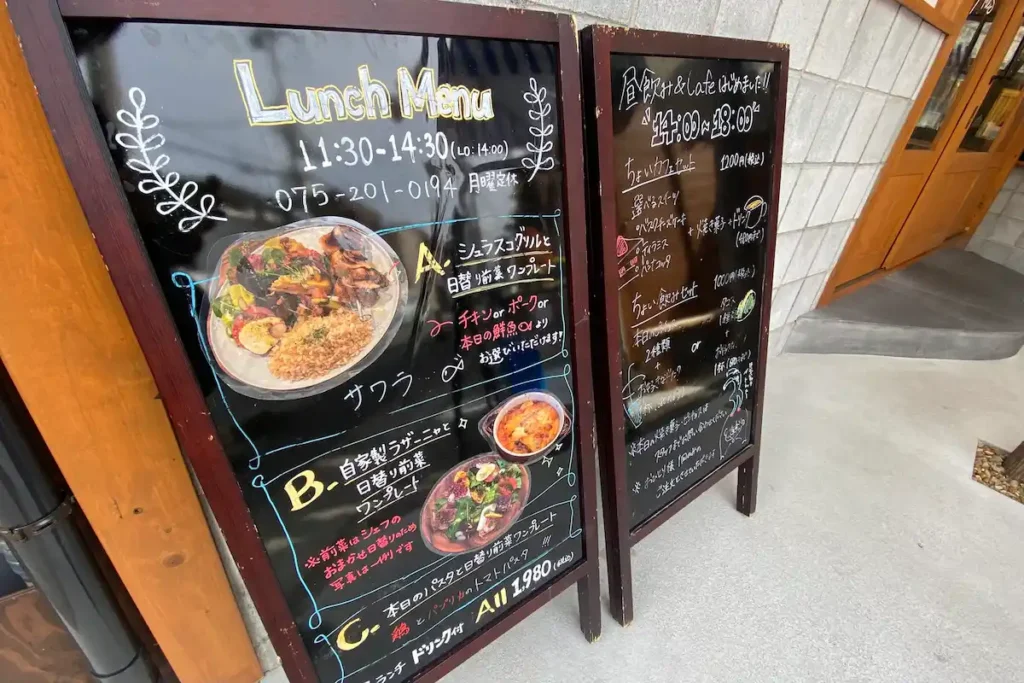 Lunch Menu
11:30-14:30(LO:14:00)
075-201-0194 月曜定休
A. シュラスコグリルと
日替り前菜ワンプレート
チキン or ポーク or
本日の鮮魚 より
お選びいただけます!
サワラ
B. 自家製ラザーニャと
日替り前菜
ワンプレート
※前菜はシェフの
おまかせ日替りのため
写真は一例です
C. 本日のパスタと日替り前菜ワンプレート
鶏とパプリカのトマトパスタ !!!
ランチ ドリンク付 All 1.980(税込)
昼飲み&Cafe はじめました!!
"14:00~18:00"
ちょいカフェセット 1200円(税込)
選べるスイーツ
・バスクチーズケーキ
・ティラミス
・パンナコッタ
+ 焼き菓子 + ドリンク
ちょい飲みセット 1000円(税込)
2種類 or
+